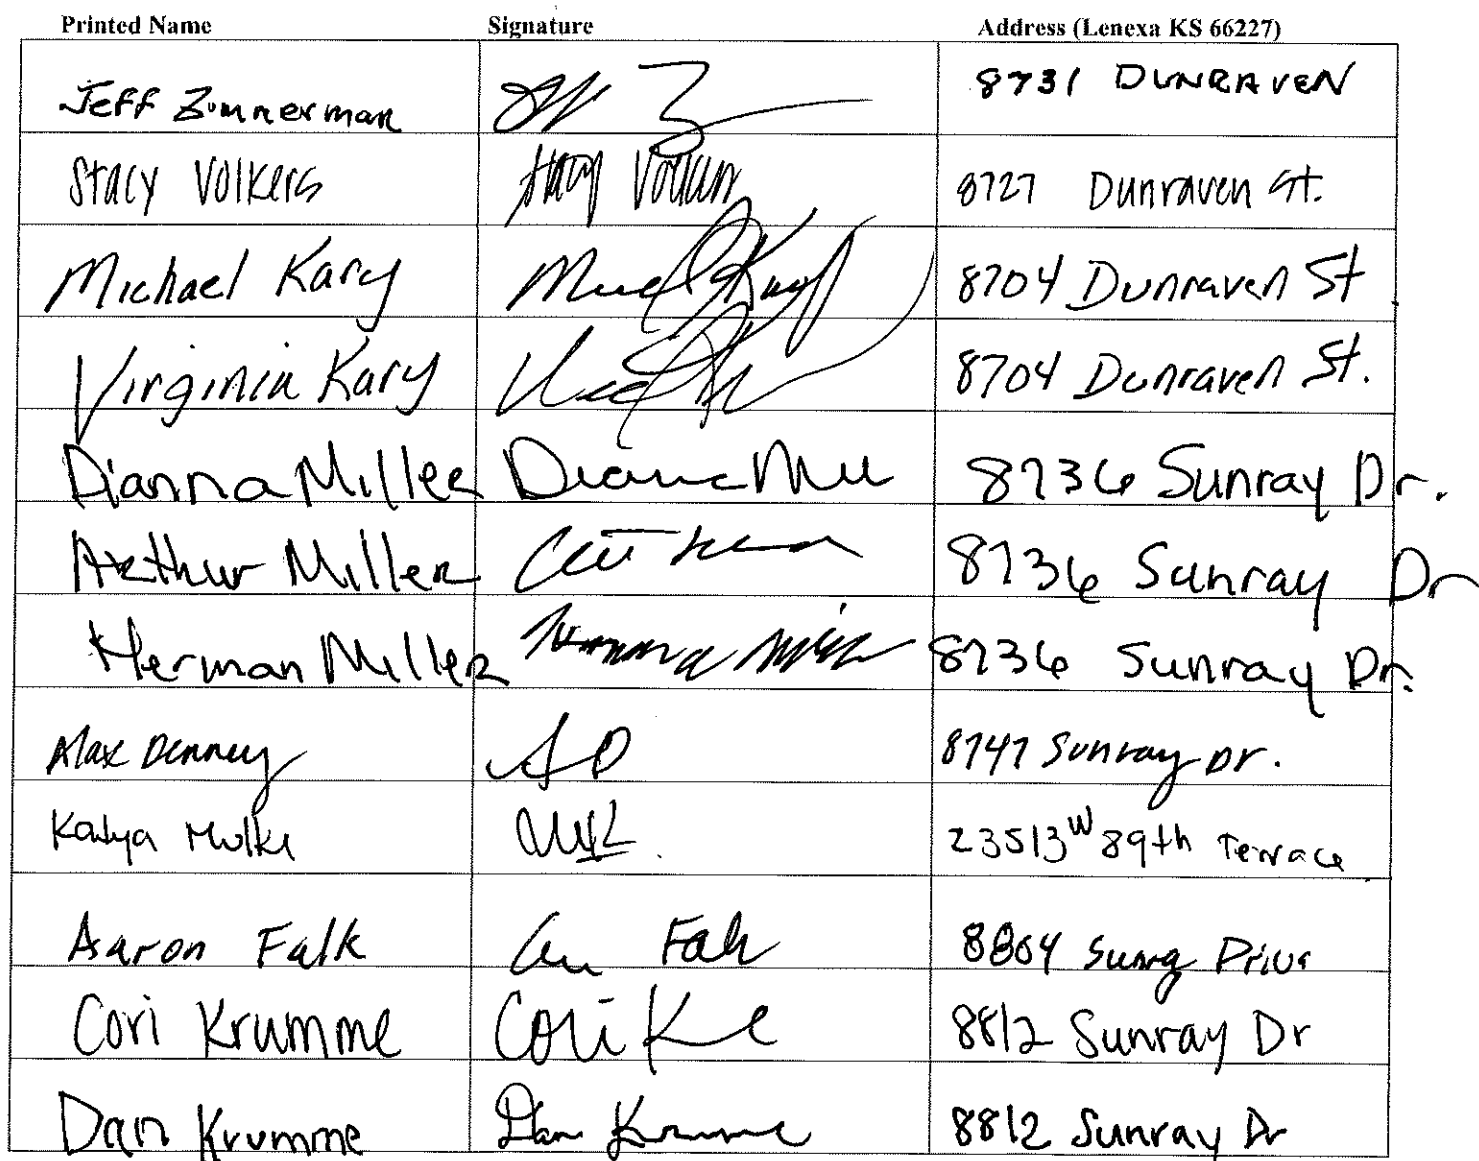 Printed Name Signature Address (Lenexa KS 66227)
Jeff Zimmerman 8731 DUNRAVEN
Stacy Volkers Stacy Volkers 8727 Dunraven St.
Michael Kary 8704 Dunraven St
Virginia Kary 8704 Dunraven St.
Dianna Miller 8736 Sunray Dr.
Arthur Miller 8736 Sunray Dr
Herman Miller 8736 Sunray Dr.
Alax Denney AD 8747 Sunray Dr.
Katya Mulki 23513 W 89th Terrace
Aaron Falk Falk 8804 Drive
Cori Krumme Cori 8812 Sunray Dr
Dan Krumme Dan Krumme 8812 Sunray Dr